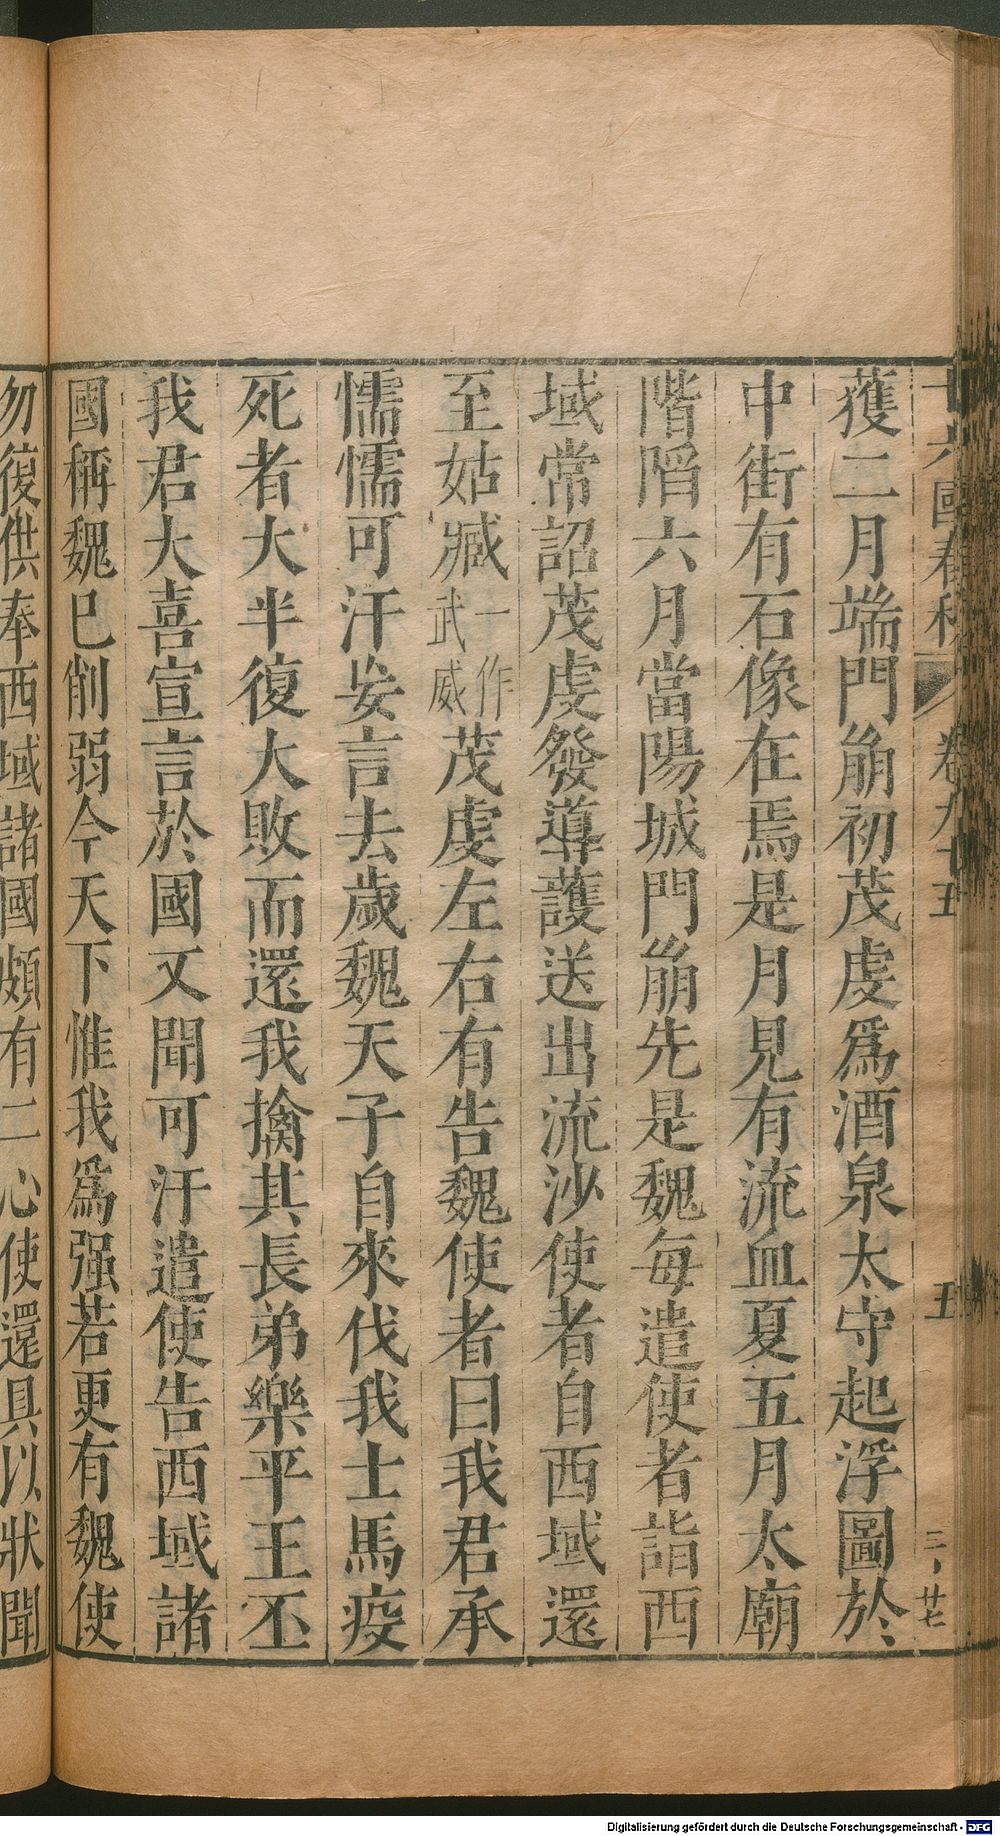 十六國春秋 卷九十五 五 三、廿七
獲二月端門崩初茂虔爲酒泉太守起浮圖於
中街有石像在焉是月見有流血夏五月太廟
階陷六月當陽城門崩先是魏每遣使者詣西
域常詔茂虔發導護送出流沙使者自西域還
至姑臧一作武威茂虔左右有告魏使者曰我君承
懦懦可汗妄言去歲魏天子自來伐我士馬疫
死者大半復大敗而還我擒其長弟樂平王丕
我君大喜宣言於國又聞可汗遣使告西域諸
國稱魏巳削弱今天下惟我爲强若更有魏使
勿復供奉西域諸國頗有二心使還具以狀聞
Digitalisierung gefördert durch die Deutsche Forschungsgemeinschaft - DFG